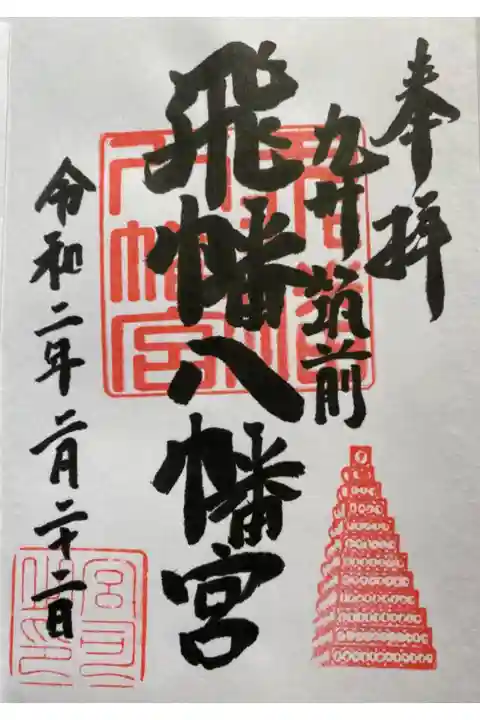 奉拝
九州筑前
飛幡八幡宮
令和二年二月二十二日
宮司之印